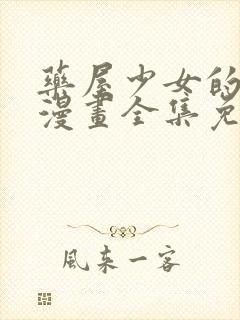 藥屋少女的
漫畫全集免
風來一客